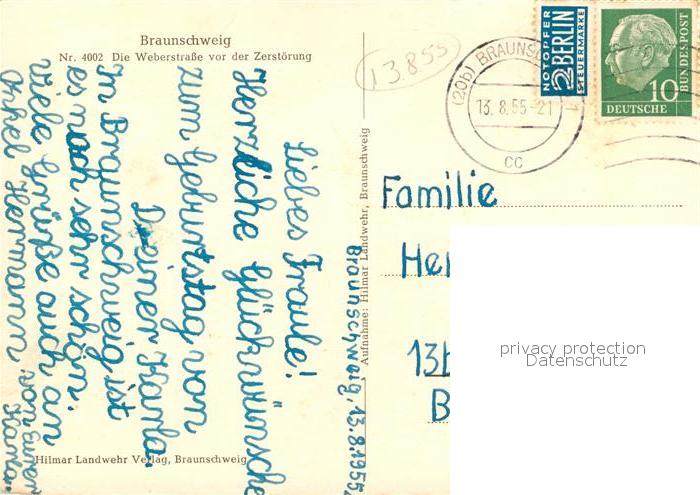 Braunschweig
Nr. 4002 Die Weberstraße vor der Zerstörung
13.8.55
(20b) BRAUNSC
13. 8. 55-21
cc
NOTOPFER
2 BERLIN
STEUERMARKE
10
DEUTSCHE
BUNDESPOST
Braunschweig, 13.8.1955.
Liebes Fraule!
Herzliche Glückwünsche
zum Geburtstag von
Deiner Karla.
Im Braunschweig ist
es noch sehr schön.
Viele Grüße auch an
Onkel Hermann
von Eurer
Karla.
Aufnahme: Hilmar Landwehr, Braunschweig
Hilmar Landwehr Verlag, Braunschweig
Familie
He
13b
B
privacy protection
Datenschutz